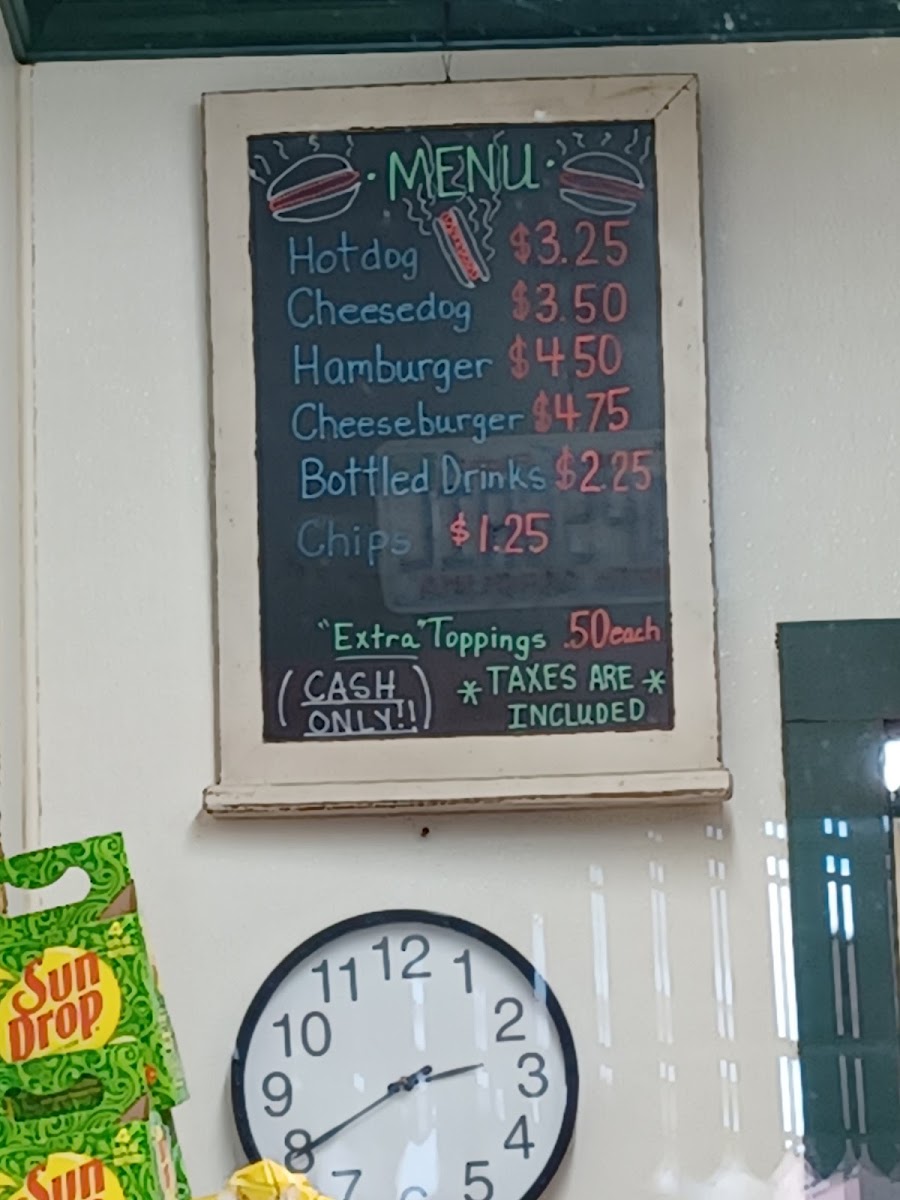 · MENU ·
Hotdog $3.25
Cheesedog $3.50
Hamburger $4.50
Cheeseburger $4.75
Bottled Drinks $2.25
Chips $1.25
"Extra" Toppings .50 each
(CASH ONLY!!)
* TAXES ARE INCLUDED *
Sun
Drop
Sun
12
1
2
3
4
5
7
8
9
10
11